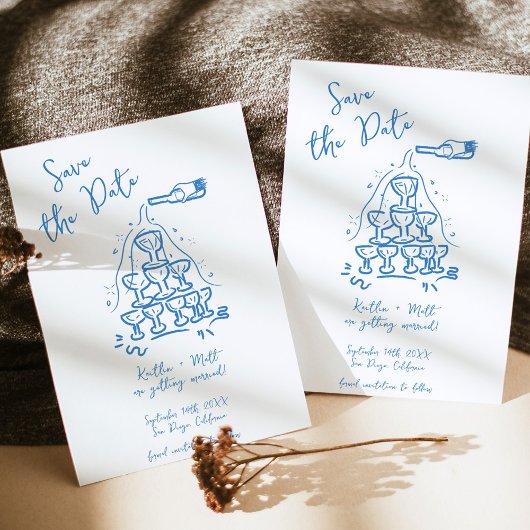 Save
the Date
Kaitlin + Matt
are getting married!
September 14th 20XX
San Diego, California
formal invitation to follow
Save
the Date
Kaitlin + Matt
are getting married!
September 14th 20XX
San Diego, California
formal invitation to follow